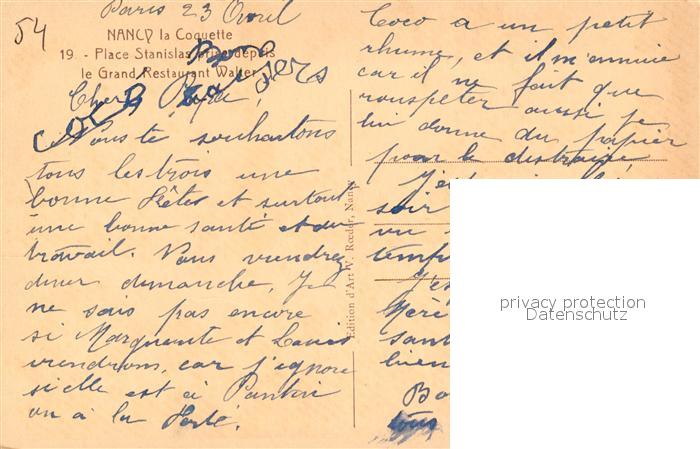 54
Paris 23 Avril
NANCY la Coquette
19. - Place Stanislas prise depuis
le Grand Restaurant Walter
Bons
Baisers
Coco
Cher
Nous te souhaitons
tous les trois une
bonne Fête et surtout
une bonne santé et du
travail. Vous viendrez
diner dimanche, Je
ne sais pas encore
si Marguerite et Louis
viendrons, car j'ignore
si elle est à Pantin
ou à la Ferté.
Edition d'Art V. Rœder, Nancy
Coco a un petit
rhume, et il m'ennuie
car il ne fait que
rouspéter aussi je
lui donne du papier
pour le distraire,
soir
vu
temp
J'es
Mère
sant
bien
Bo
tous
privacy protection
Datenschutz